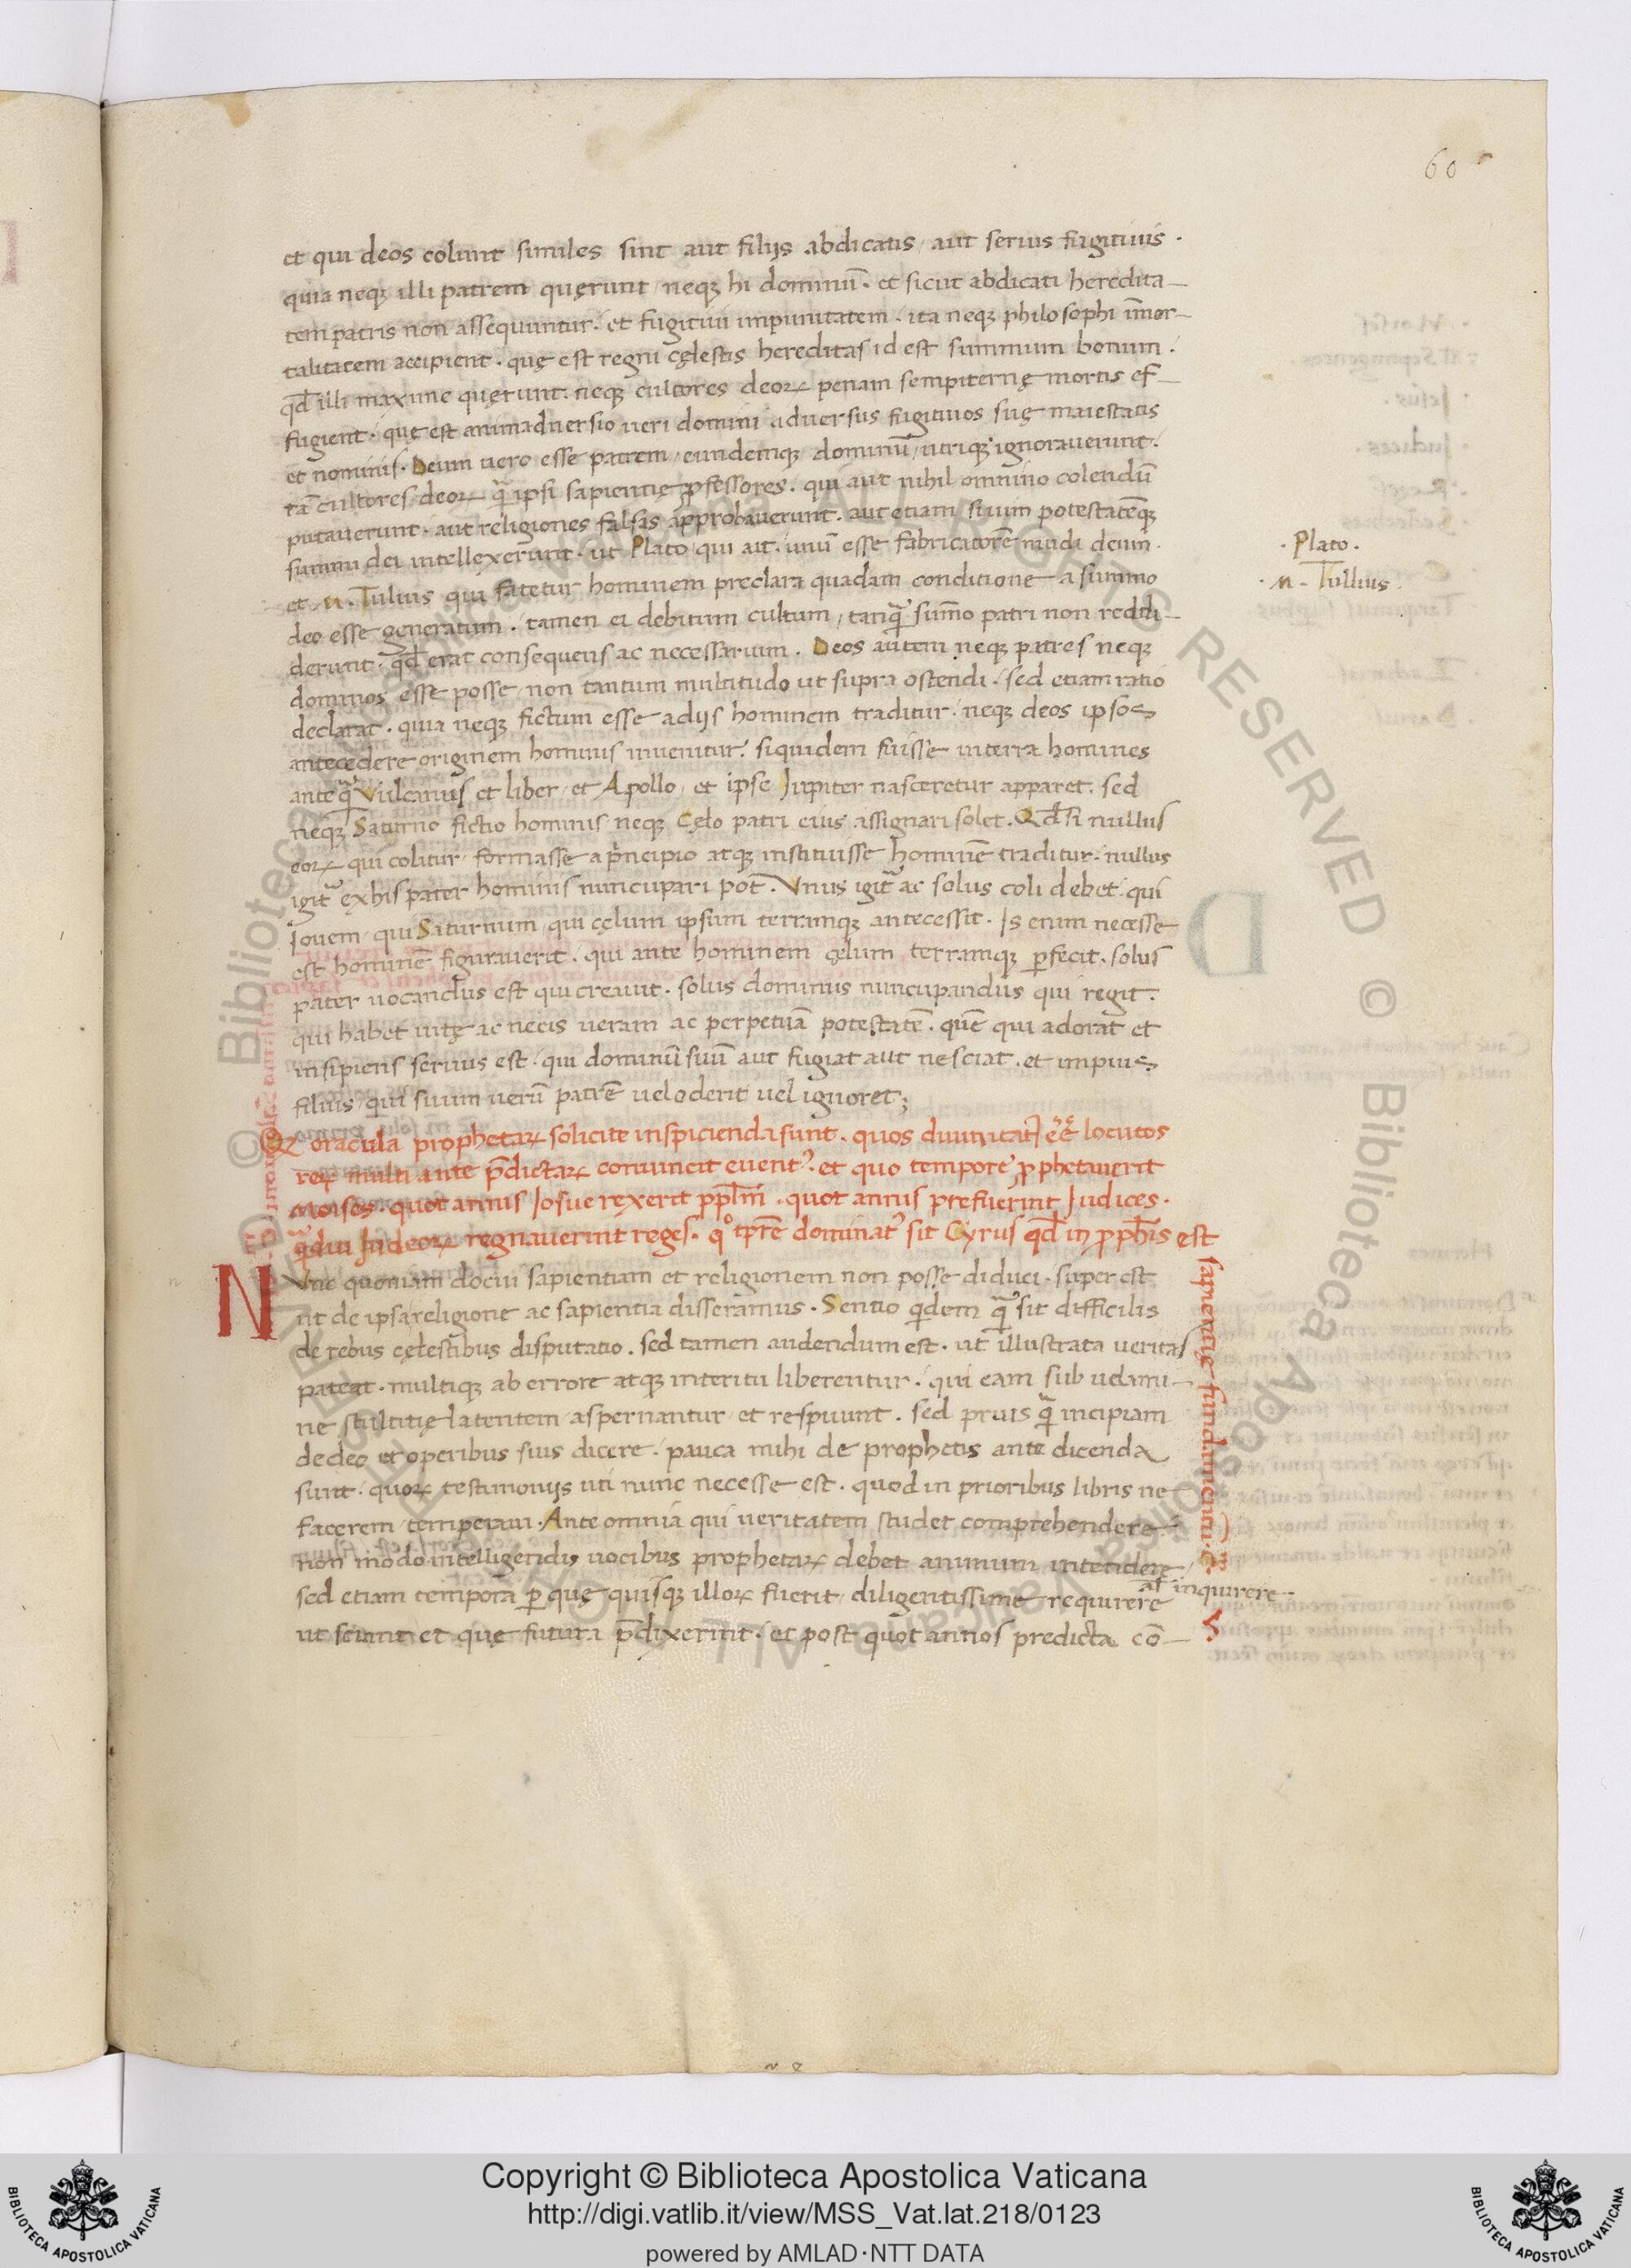 60
et qui deos colunt similes sint aut filijs abdicatis / aut seruis fugitiuis .
quia neqꝫ illi patrem quęrunt / neqꝫ hi dominū . et sicut abdicati heredita-
tem patris non assequuntur . et fugitiui impunitatem . ita neqꝫ philosophi īmor-
talitatem accipient . quę est regni cęlestis hereditas id est summum bonum .
qđ illi maxime quęrunt . neqꝫ cultores deoꝝ penam sempiternę mortis ef-
fugient . quę est animaduersio ueri domini aduersus fugitiuos suę maiestatis
et nominis . Deum uero esse patrem / eundemqꝫ dominū / utriqꝫ ignorauerunt .
tā cultores deoꝝ qᷓ ipsi sapientię ꝓfessores . qui aut nihil omnino colendū
putauerunt . aut religiones falsas approbauerunt . aut etiam si uim potestatēqꝫ
summi dei intellexerunt . ut Plato qui ait . unū esse fabricatorē mūdi deum .
et .M. Tulius qui fatetur hominem preclara quadam conditione a summo
deo esse generatum . tamen ei debitum cultum / tanqᷓ sūmo patri non reddi-
derunt . qđ erat consequens ac necessarium . Deos autem neqꝫ patres neqꝫ
dominos esse posse / non tantum multitudo ut supra ostendi . sed etiam ratio
declarat . quia neqꝫ fictum esse a dijs hominem traditur . neqꝫ deos ipsos
antecedere originem hominis inuenitur . siquidem fuisse in terra homines
anteqᷓ Vulcanus et liber / et Apollo / et ipse Iupiter nasceretur apparet . sed
neqꝫ Saturno fictio hominis neqꝫ Cęlo patri eius assignari solet . Qđ si nullus
eoꝝ qui colitur / formasse a principio atqꝫ instituisse hominē traditur . nullus
igit̃ ex his pater hominis nuncupari pot̄ . Vnus igit̃ ac solus coli debet . qui
Iouem / qui Saturnum / qui cęlum ipsum terramqꝫ antecessit . Is enim necesse
est hominē figurauerit . qui ante hominem cęlum terramqꝫ ꝑfecit . solus
pater uocandus est qui creauit . solus dominus nuncupandus qui regit .
qui habet uitę ac necis ueram ac perpetuā potestatē . quē qui adorat et
insipiens seruus est . qui dominū suū aut fugiat aut nesciat . et impius
filius / qui suum uerū patrē uel oderit uel ignoret ;
· Plato .
· M . Tullius .
Q oracula prophetaꝝ solicite inspicienda sunt . quos diuinitat̃ eē locutos
reꝝ multi ante p̄dictaꝝ conuincit euent᾿ . et quo tempore ꝓphetauerit
Moises . quot annis Iosue rexerit ppl̄m . quot annis prefuerint Iudices .
qᷓdiu Iudeoꝝ regnauerint reges . qͦ tp̄re dominat᾿ sit Cyrus qđ in ꝓph̄is est
sapientię fundamentū .
NVnc quoniam docui sapientiam et religionem non posse diduci . super est
ut de ipsa religione ac sapientia disseramus . Sentio qͥdem qᷓ sit difficilis
de rebus cęlestibus disputatio . sed tamen audendum est . ut illustrata ueritas
pateat . multiqꝫ ab errore atqꝫ interitu liberentur . qui eam sub uelami-
ne stultitię latentem / aspernantur / et respuunt . sed prius qᷓ incipiam
de deo et operibus suis dicere . pauca mihi de prophetis ante dicenda
sunt . quoꝝ testimonijs uti nunc necesse est . quod in prioribus libris ne
facerem / temperaui . Ante omnia qui ueritatem studet comprehendere .
non modo intelligendis uocibus prophetaꝝ debet animum intendere /
sed etiam tempora ꝑ quę quisqꝫ illoꝝ fuerit / diligentissime requirere
al̄ inquirere .
ut sciant et quę futura p̄dixerint . et post quot annos predicta cō-
Copyright © Biblioteca Apostolica Vaticana
http://digi.vatlib.it/view/MSS_Vat.lat.218/0123
powered by AMLAD·NTT DATA
BIBLIOTECA APOSTOLICA VATICANA
BIBLIOTECA APOSTOLICA VATICANA